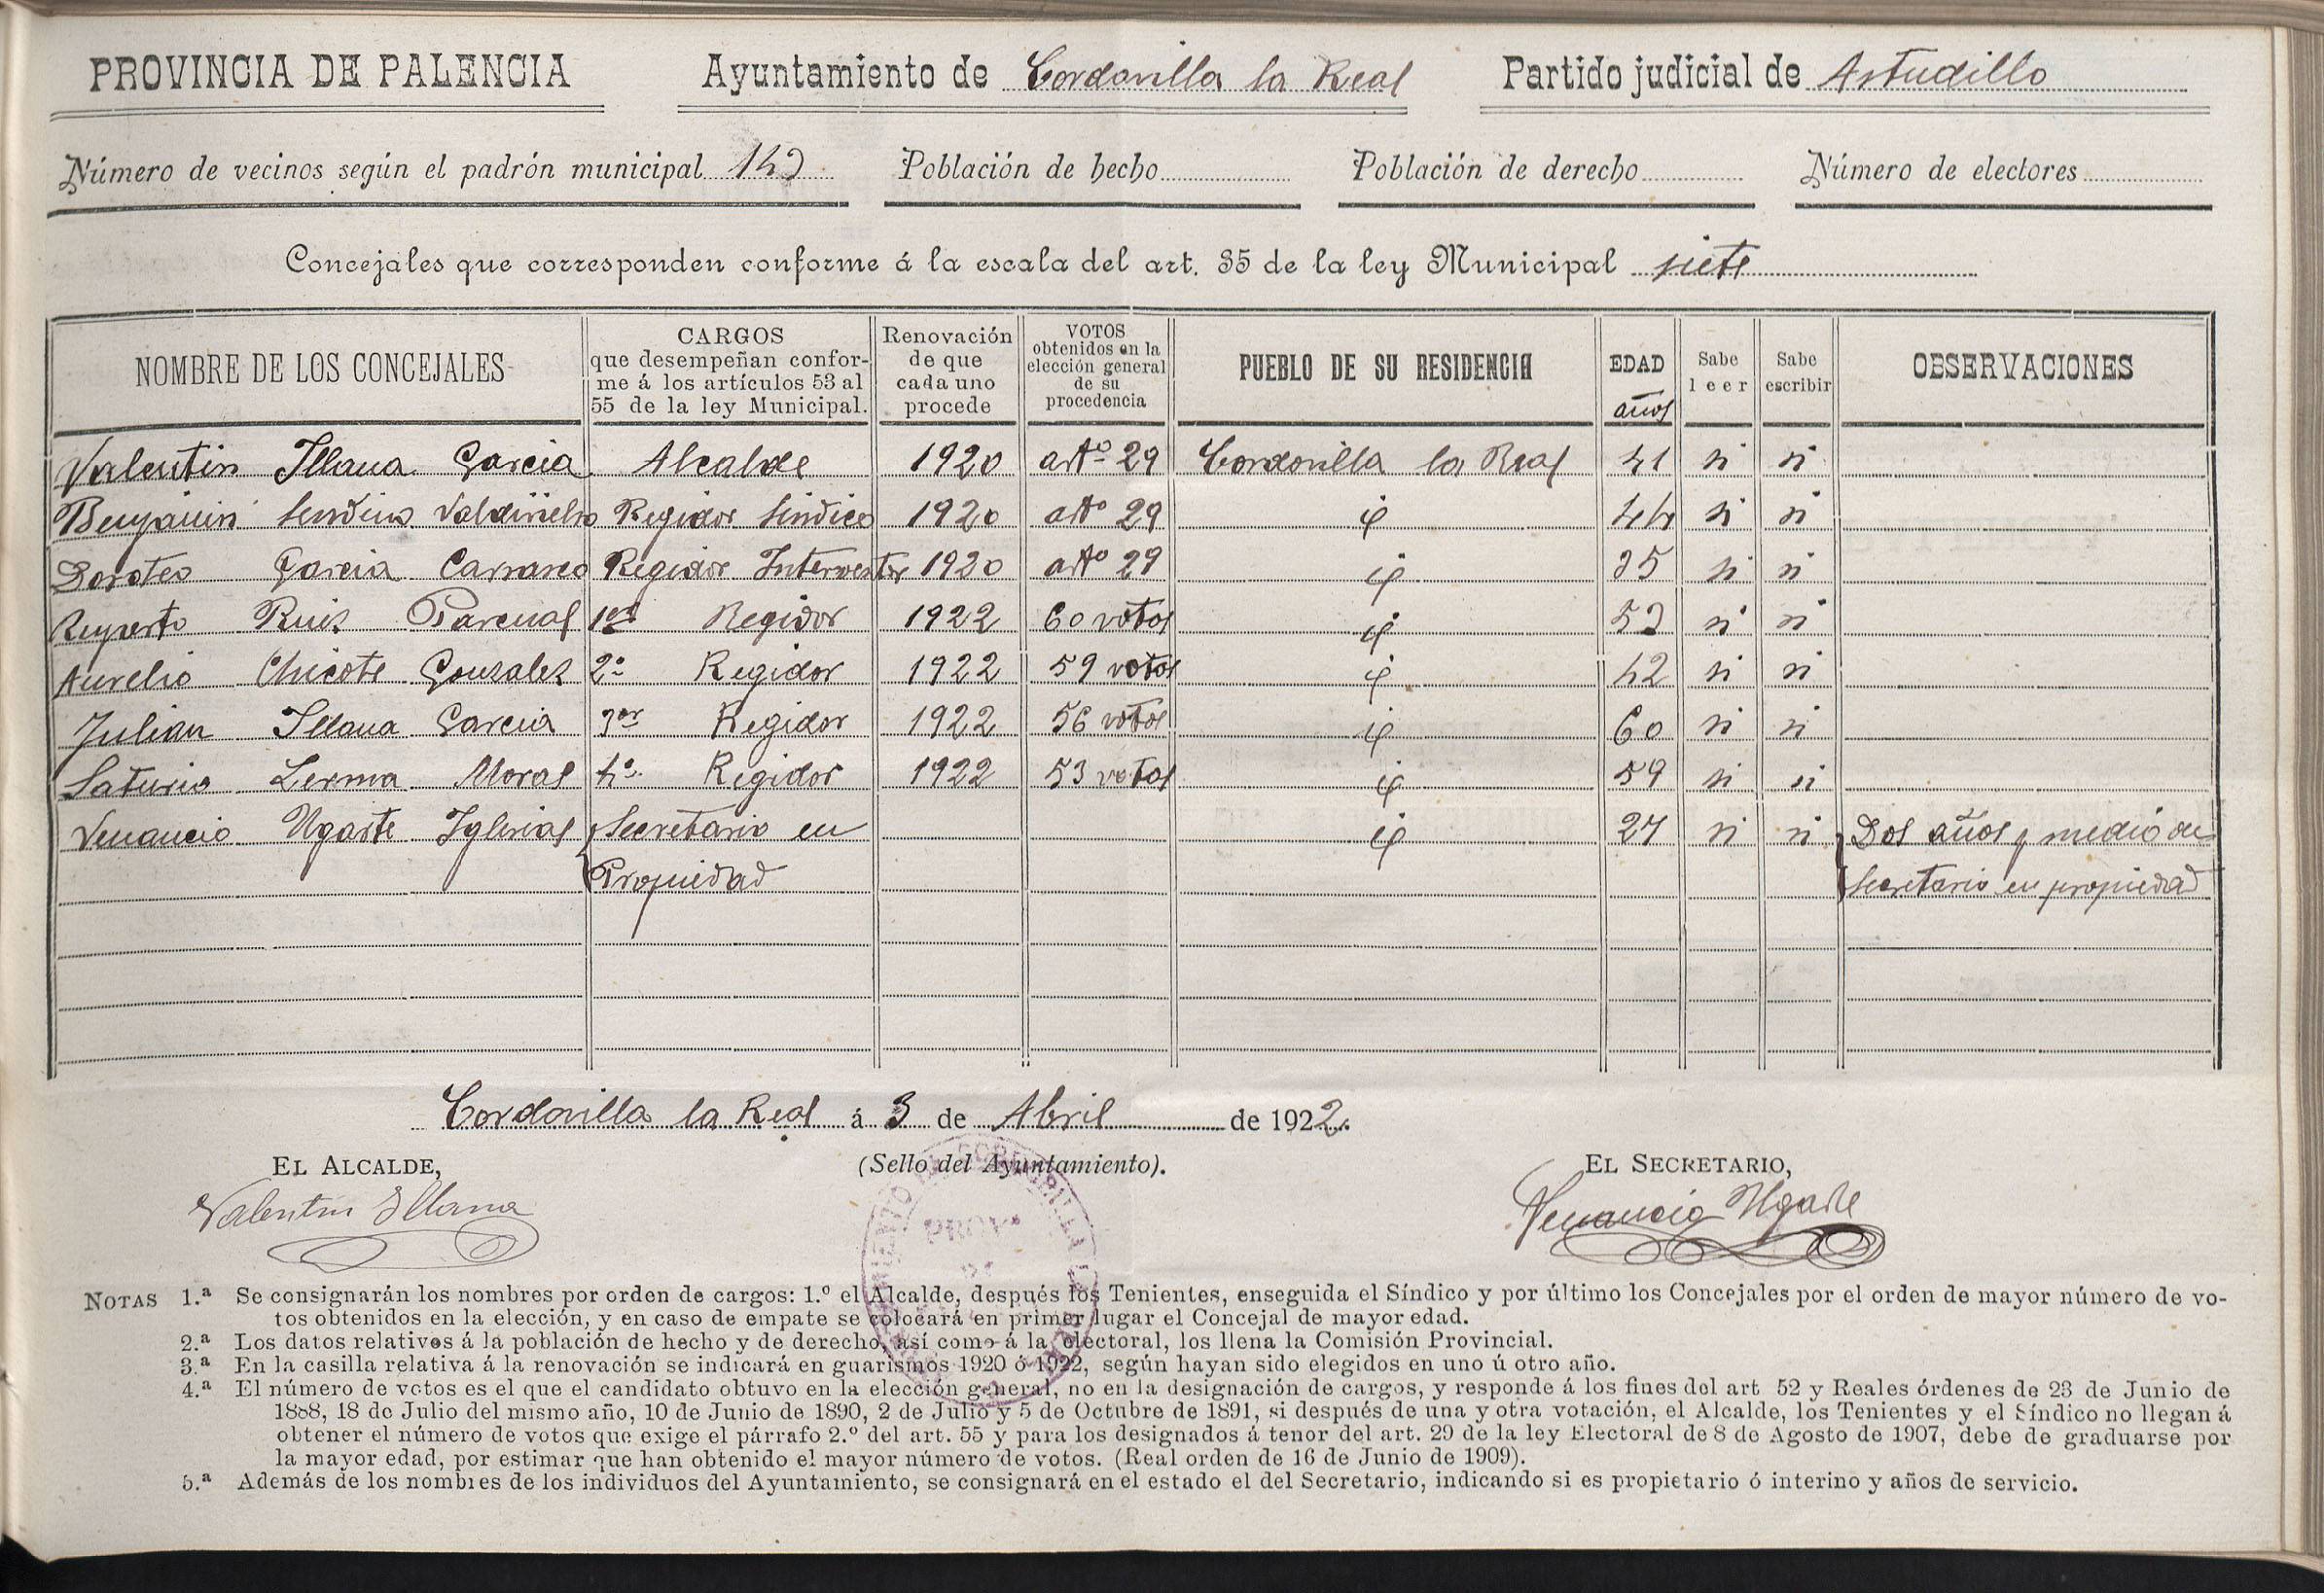 PROVINCIA DE PALENCIA Ayuntamiento de Cordovilla la Real Partido judicial de Astudillo
Número de vecinos según el padrón municipal 142 Población de hecho Población de derecho Número de electores
Concejales que corresponden conforme á la escala del art. 35 de la ley Municipal siete
NOMBRE DE LOS CONCEJALES CARGOS que desempeñan conforme á los artículos 53 al 55 de la ley Municipal. Renovación de que cada uno procede VOTOS obtenidos en la elección general de su procedencia PUEBLO DE SU RESIDENCIA EDAD años Sabe leer Sabe escribir OBSERVACIONES
Valentin Illana Garcia Alcalde 1920 artº 29 Cordovilla la Real 41 si si
Benjamin Sendino Regidor Sindico 1920 artº 29 id 44 si si
Doroteo Garcia Carrasco Regidor Interventor 1920 artº 29 id 35 si si
Ruperto Ruiz Pascual 1er Regidor 1922 60 votos id 53 si si
Aurelio Chicote Gonzalez 2º Regidor 1922 59 votos id 42 si si
Julian Illana Garcia 3er Regidor 1922 56 votos id 60 si si
Saturio Lerma Moral 4º Regidor 1922 53 votos id 59 si si
Venancio Ugarte Iglesias Secretario en id 27 si si Dos años y medio de
Propiedad Secretario en propiedad
Cordovilla la Real á 3 de Abril de 1922.
EL ALCALDE, (Sello del Ayuntamiento). EL SECRETARIO,
Valentin Illana Venancio Ugarte
PROVª
NOTAS 1.ª Se consignarán los nombres por orden de cargos: 1.º el Alcalde, después los Tenientes, enseguida el Síndico y por último los Concejales por el orden de mayor número de vo-
tos obtenidos en la elección, y en caso de empate se colocará en primer lugar el Concejal de mayor edad.
2.ª Los datos relativos á la población de hecho y de derecho, así como á la electoral, los llena la Comisión Provincial.
3.ª En la casilla relativa á la renovación se indicará en guarismos 1920 ó 1922, según hayan sido elegidos en uno ú otro año.
4.ª El número de votos es el que el candidato obtuvo en la elección general, no en la designación de cargos, y responde á los fines del art. 52 y Reales órdenes de 23 de Junio de
1888, 18 de Julio del mismo año, 10 de Junio de 1890, 2 de Julio y 5 de Octubre de 1891, si después de una y otra votación, el Alcalde, los Tenientes y el Síndico no llegan á
obtener el número de votos que exige el párrafo 2.º del art. 55 y para los designados á tenor del art. 29 de la ley Electoral de 8 de Agosto de 1907, debe de graduarse por
la mayor edad, por estimar que han obtenido el mayor número de votos. (Real orden de 16 de Junio de 1909).
5.ª Además de los nombres de los individuos del Ayuntamiento, se consignará en el estado el del Secretario, indicando si es propietario ó interino y años de servicio.